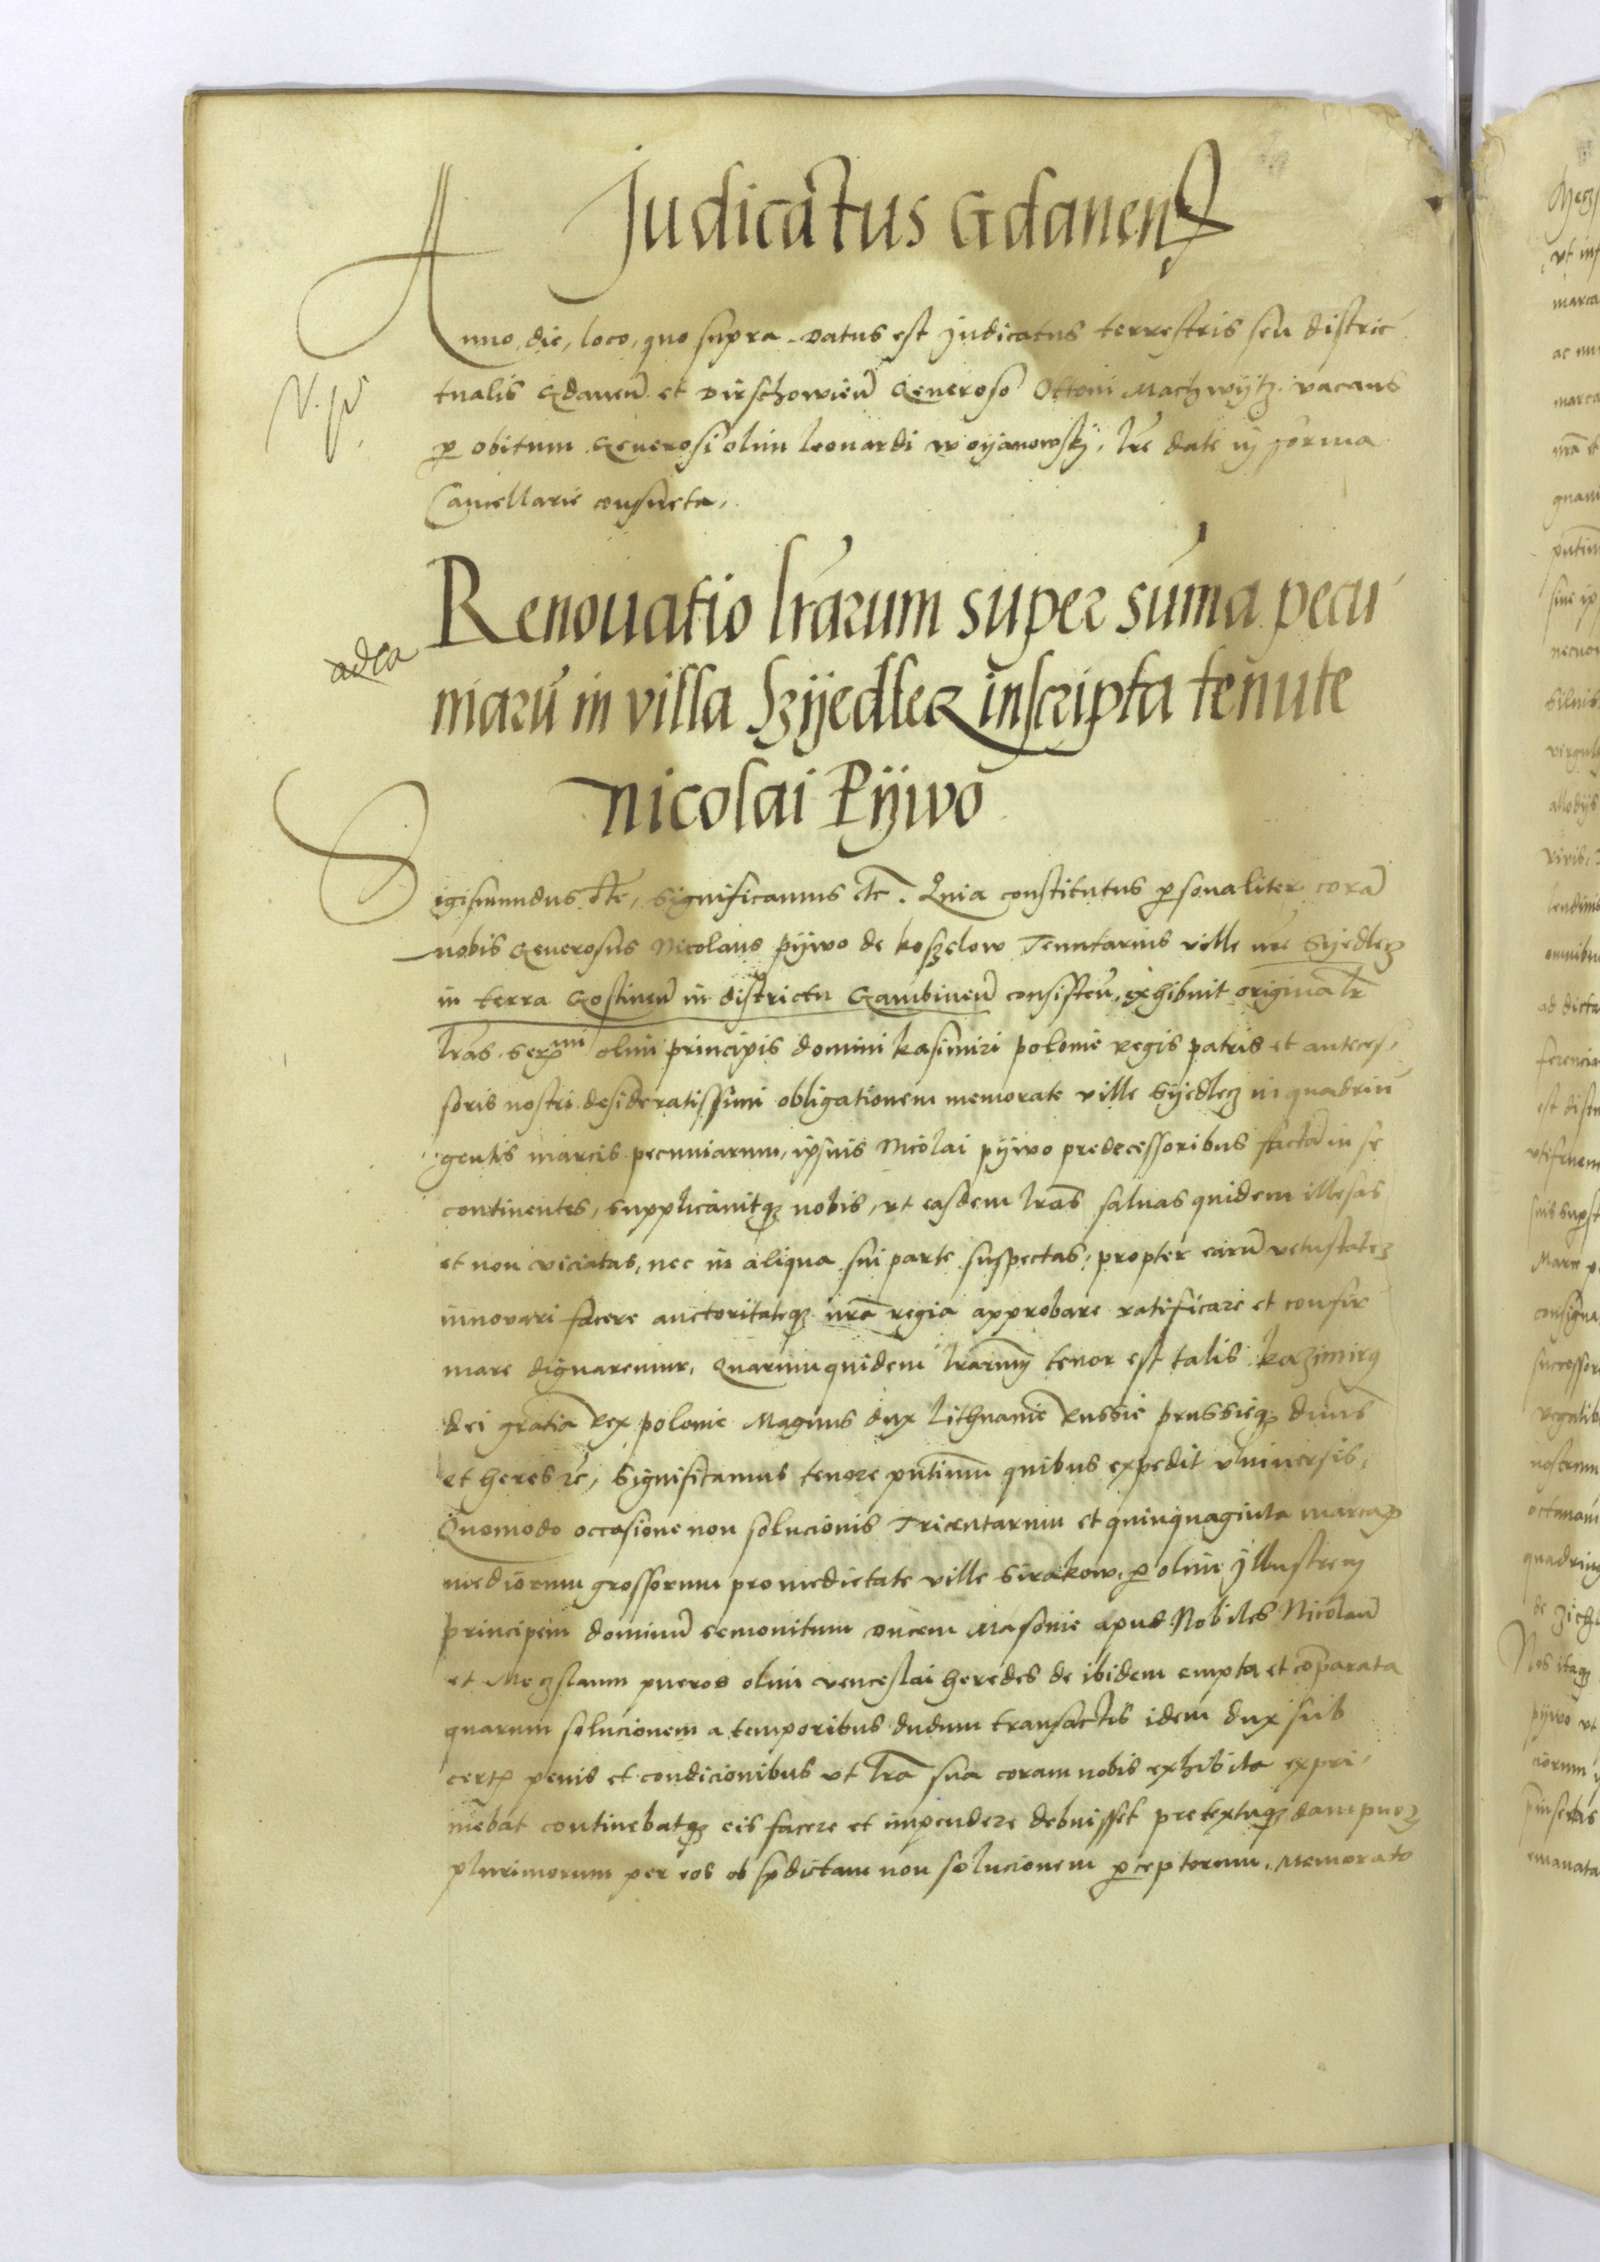 Judicatus Gdanens
Anno, die, loco, quo supra. Datus est Judicatus terrestris seu distric
tualis Gdanen̄ et Dirschowien̄ Generoso Ottoni Machwytz vacans
p obitum Generosi olim Leonardi woyanowsky, lr̄e date in forma
Cancellarie consueta.
Renouatio lr̄arum super sum̄a pecu
adea
niarū in villa Szyedlecz inscripta tenute
Nicolai Pywo
Sigismundus etc̄, Significamus etc̄. Quia constitutus p̱sonaliter corā
nobis Generosus Nicolaus pywo de koszelow Tenutarius ville nr̄e Syedlecz
in terra Gostinen̄ in districtu Gambinen̄ consisten̄, exhibuit original̄
lr̄as ser̄mi olim principis domini kasimiri polonie regis patris et anteces,
soris nostri desideratissimi obligationem memorate ville Syedlecz in quadrin̄
gentis marcis pecuniarum, ipsius Nicolai pywo predecessoribus factā in se
continentes, supplicauitqȝ nobis, vt easdem lr̄as saluas quidem illesas
et non viciatas, nec in aliqua sui parte suspectas, propter earū vetustatē
innovari facere auctoritateqȝ nr̄a regia approbare ratificare et confir
mare dignaremur, Quarum quidem lr̄arum tenor est talis kazimirꝯ
dei gratia Rex polonie Magnus dux Lithuanie Russie prussieqȝ dn̄us
et heres etc̄, Significamus tenore pn̄tium quibus expedit vniuersis,
Quomodo occasione non solucionis Tricentarum et quinquaginta marcaꝝ
mediorum grossorum pro medietate ville Sirakow, p̱ olim Jllustrem
principem dominū Semouitum ducem Masouie apud Nobiles Nicolaū
et Meczslaum pueros olim venceslai heredes de ibidem empta et cōparata
quarum solucionem a temporibus dudum transactis idem dux sub
certꝭ penis et condicionibus vt lr̄a sua coram nobis exhibita expri,
mebat continebatqȝ eis facere et impendere debuisset pretextuqȝ dampnoꝝ
plurimorum per eos ob p̄dictam non solucionem p̱ceptorum, Memorato